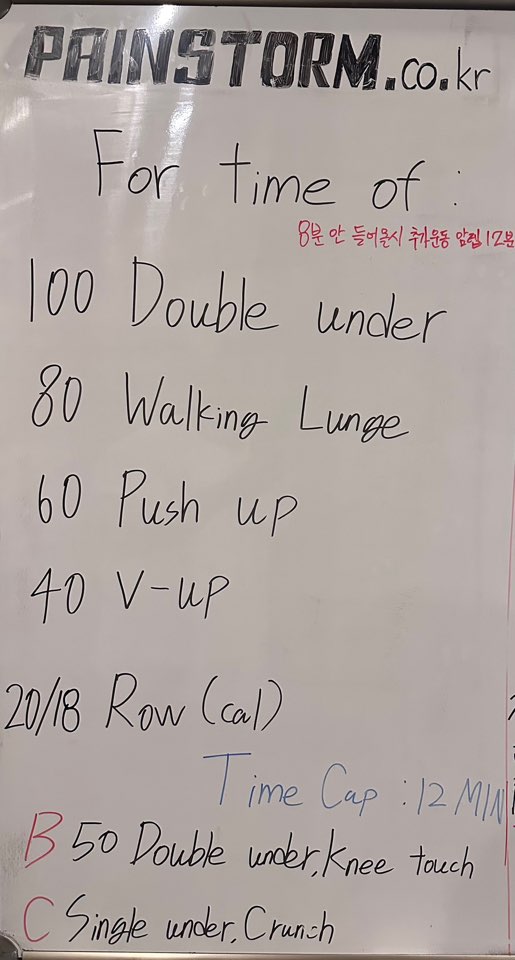 PAINSTORM.co.kr
For time of :
8분 안 들어올시 추가운동 암찜 12분
100 Double under
80 Walking Lunge
60 Push up
40 V-up
20/18 Row (cal)
Time Cap : 12 MIN
B 50 Double under, Knee touch
C Single under, Crunch